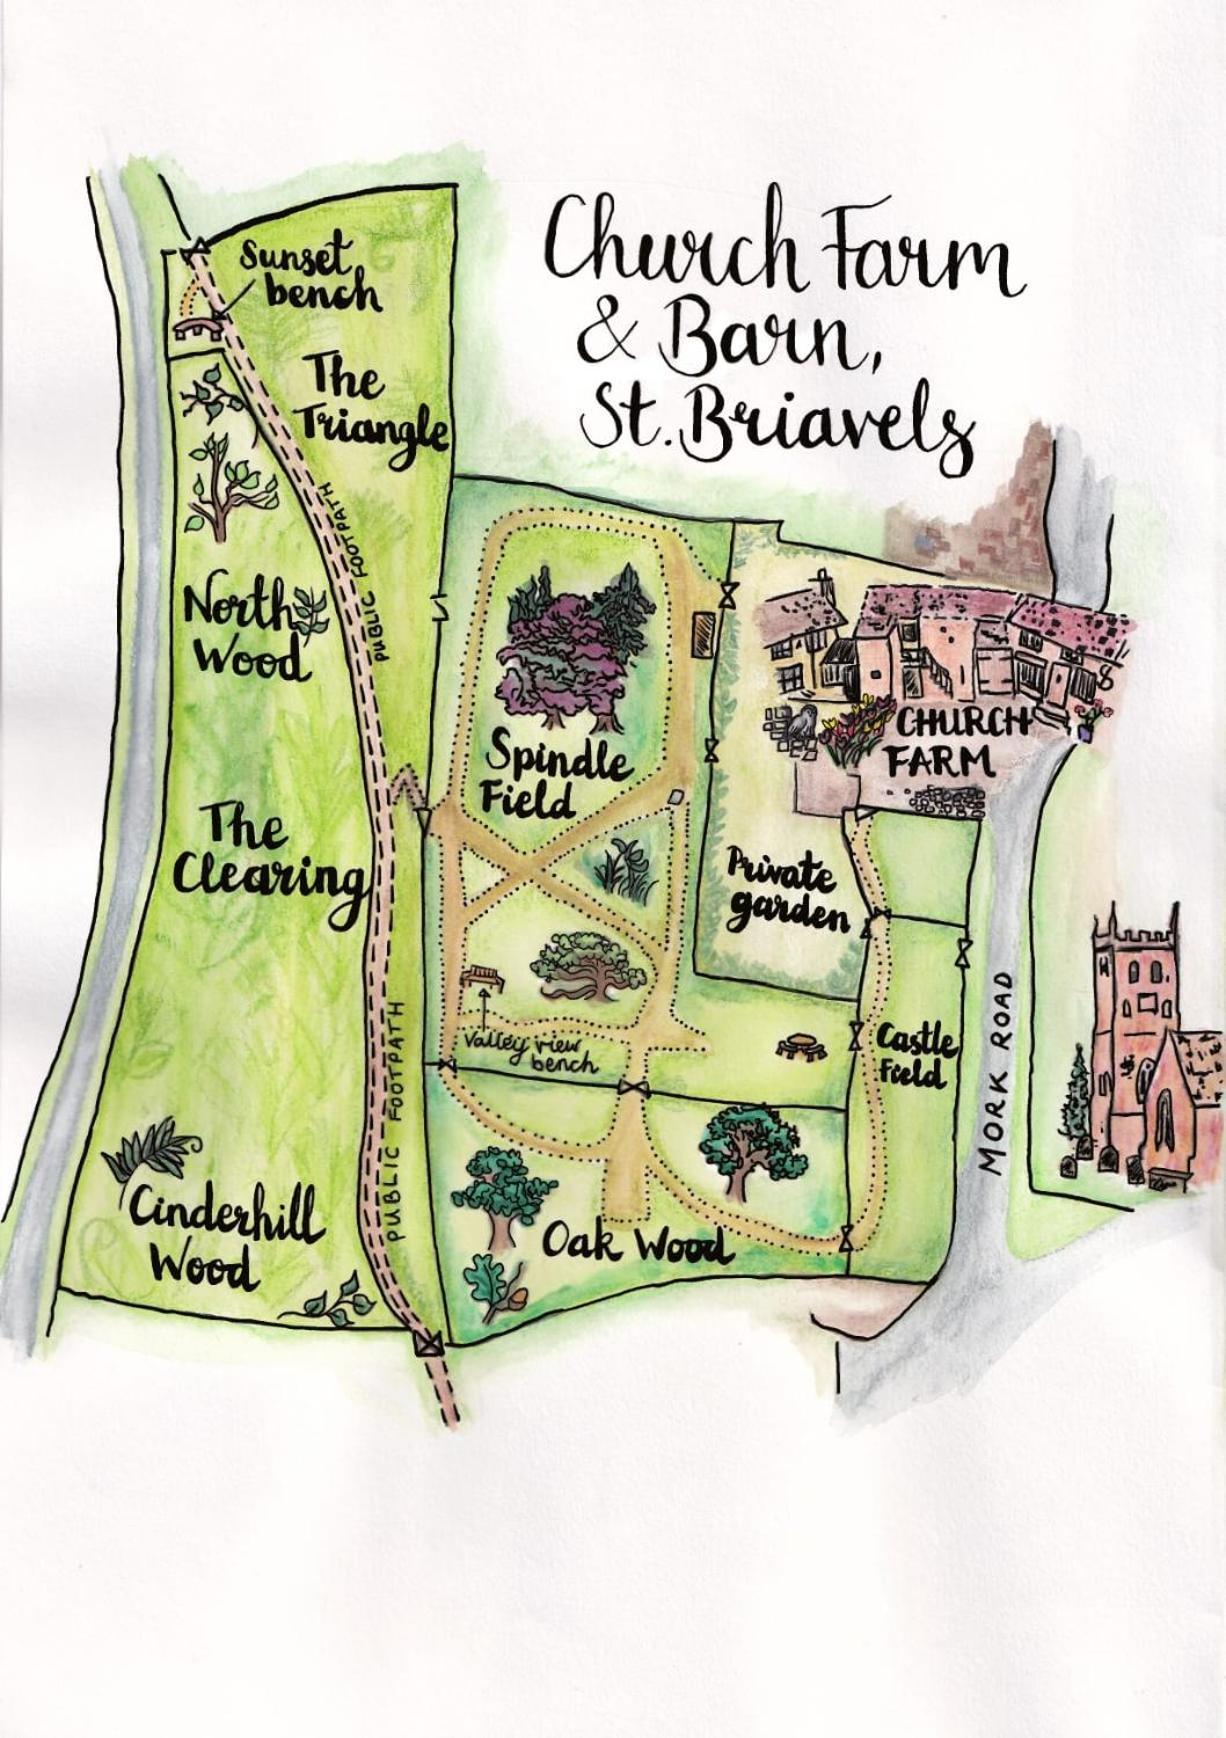 Church Farm
& Barn,
St. Briavels
Sunset
bench
The
Triangle
PUBLIC FOOTPATH
North
Wood
Spindle
Field
CHURCH
FARM
The
Clearing
Private
garden
PUBLIC FOOTPATH
Valley view
bench
Castle
Field
MORK ROAD
Cinderhill
Wood
Oak Wood